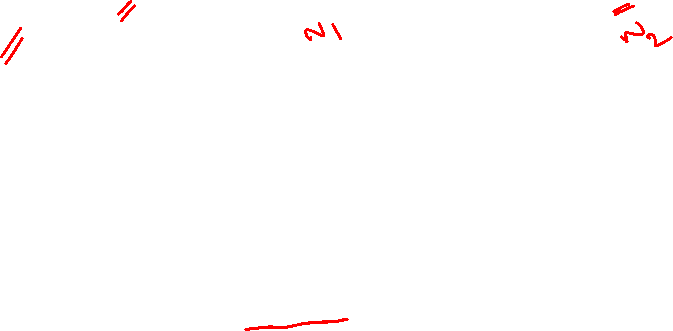 N1 N2